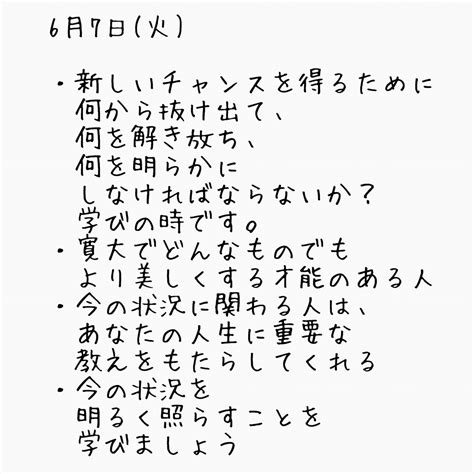 6月7日(火)
・新しいチャンスを得るために
何から抜け出て、
何を解き放ち、
何を明らかに
しなければならないか?
学びの時です。
・寛大でどんなものでも
より美しくする才能のある人
・今の状況に関わる人は、
あなたの人生に重要な
教えをもたらしてくれる
・今の状況を
明るく照らすことを
学びましょう